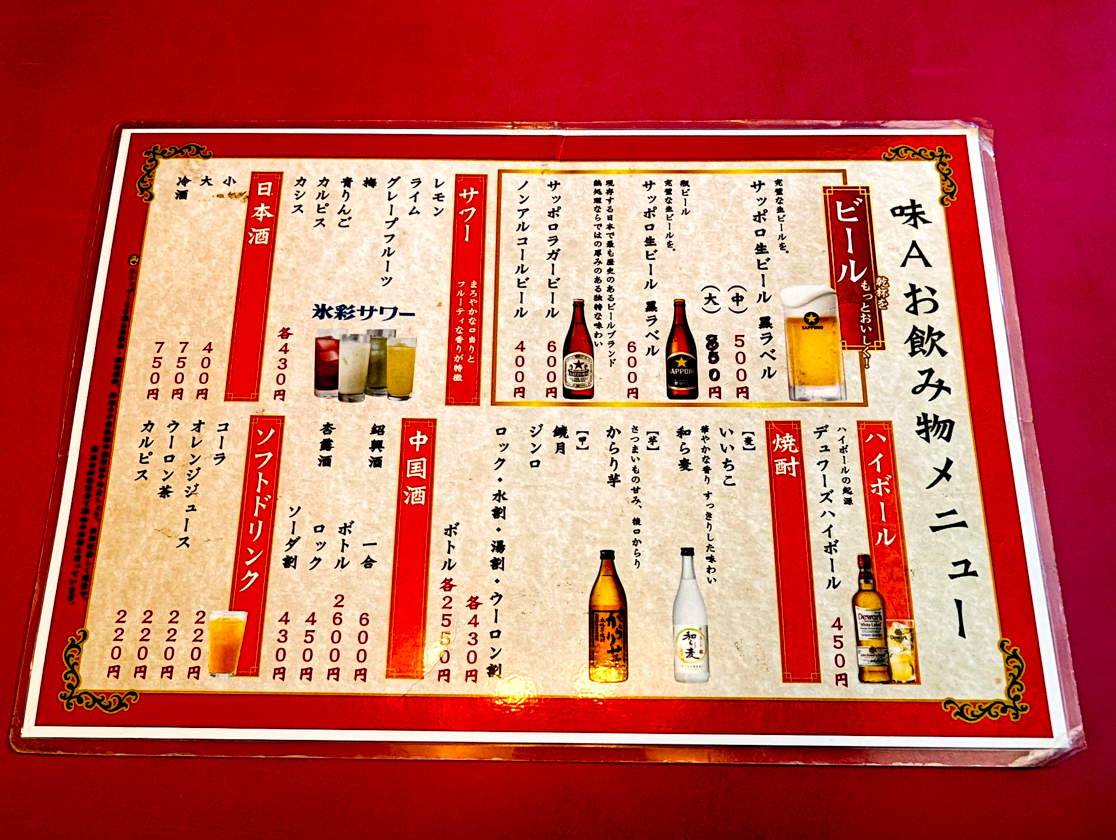 味Aお飲み物メニュー
ビール
乾杯を
もっとおいしく!
完璧な生ビールを。
サッポロ生ビール 黒ラベル
(中) 500円
(大) 850円
SAPPORO
瓶ビール
完璧な生ビールを。
サッポロ生ビール 黒ラベル
600円
SAPPORO
現存する日本で最も歴史のあるビールブランド
熱処理ならではの厚みのある独特な味わい
サッポロラガービール 600円
ノンアルコールビール 400円
サワー
まろやかな口当りと
フルーティな香りが特徴
レモン
ライム
グレープフルーツ
梅
青りんご
カルピス
カシス
各430円
氷彩サワー
日本酒
小 400円
大 750円
冷酒 750円
ハイボール
ハイボールの起源
デュワーズハイボール
450円
Dewar's
White Label
焼酎
【麦】
いいちこ
華やかな香り すっきりした味わい
和ら麦
和ら麦
【芋】
さつまいもの甘み、後口からり
からり芋
からり芋
【甲】
鏡月
ジンロ
ロック・水割・湯割・ウーロン割
各430円
ボトル 各2550円
中国酒
紹興酒
一合 600円
ボトル 2600円
杏露酒
ロック 450円
ソーダ割 430円
ソフトドリンク
コーラ 220円
オレンジジュース 220円
ウーロン茶 220円
カルピス 220円